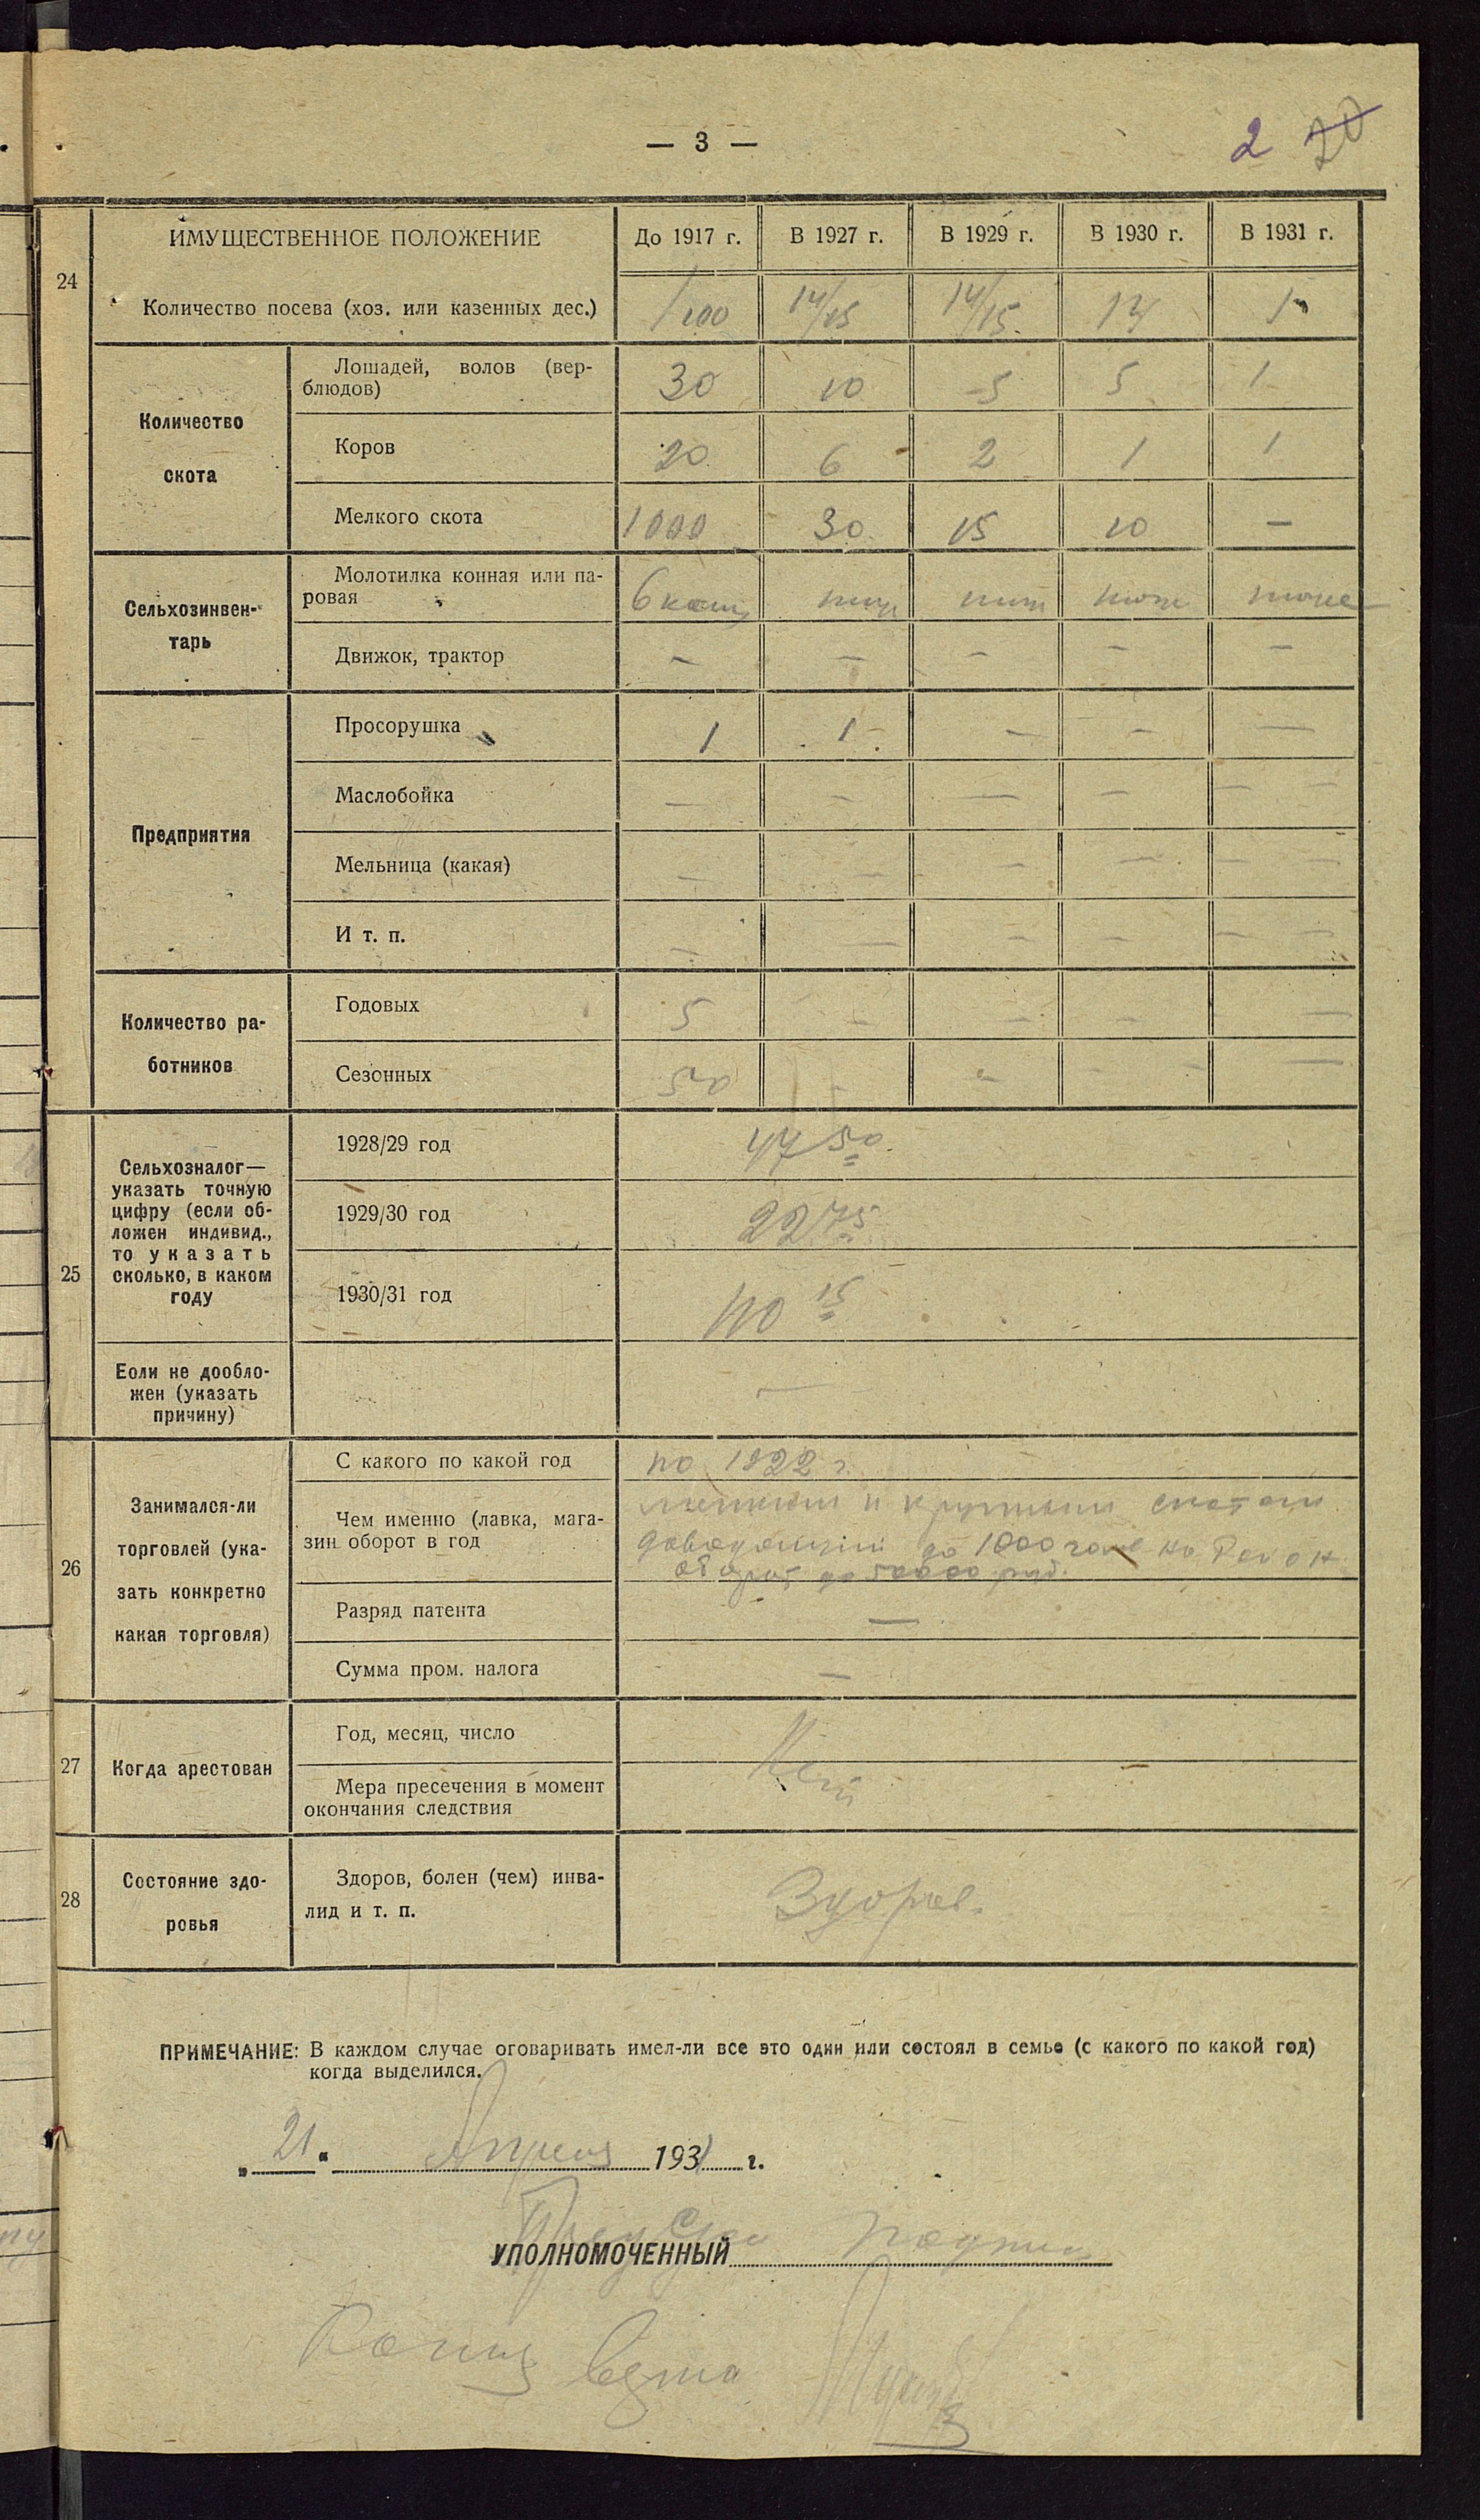 — 3 —
2 20
24
ИМУЩЕСТВЕННОЕ ПОЛОЖЕНИЕ До 1917 г. В 1927 г. В 1929 г. В 1930 г. В 1931 г.
Количество посева (хоз. или казенных дес.) 14/15 14/15
Количество
скота
Лошадей, волов (вер-
блюдов) 30 10 5 5 1
Коров 20 6 2 1 1
Мелкого скота 1000 30 15 10 —
Сельхозинвен-
тарь
Молотилка конная или па-
ровая 6
Движок, трактор — — — — —
Предприятия
Просорушка 1 1 — — —
Маслобойка — — — — — —
Мельница (какая) — — — — — —
И т. п. — — — — — —
Количество ра-
ботников
Годовых 5 — — — —
Сезонных 50 - - - - —
25
Сельхозналог—
указать точную
цифру (если об-
ложен индивид.,
то указать
сколько, в каком
году
1928/29 год 47 50
1929/30 год 22 75
1930/31 год 15
Если не дообло-
жен (указать
причину)
—
26
Занимался-ли
торговлей (ука-
зать конкретно
какая торговля)
С какого по какой год по 1922 г.
Чем именно (лавка, мага-
зин оборот в год
и крупным скотом
до 1000 гол
оборот до 50000 руб.
Разряд патента —
Сумма пром. налога —
27
Когда арестован
Год, месяц, число
Нет
Мера пресечения в момент
окончания следствия
28
Состояние здо-
ровья
Здоров, болен (чем) инва-
лид и т. п.
Здоров.
ПРИМЕЧАНИЕ: В каждом случае оговаривать имел-ли все это один или состоял в семье (с какого по какой год)
когда выделился.
„ 21 “ Апреля 1931 г.
УПОЛНОМОЧЕННЫЙ подпись
Копия верна